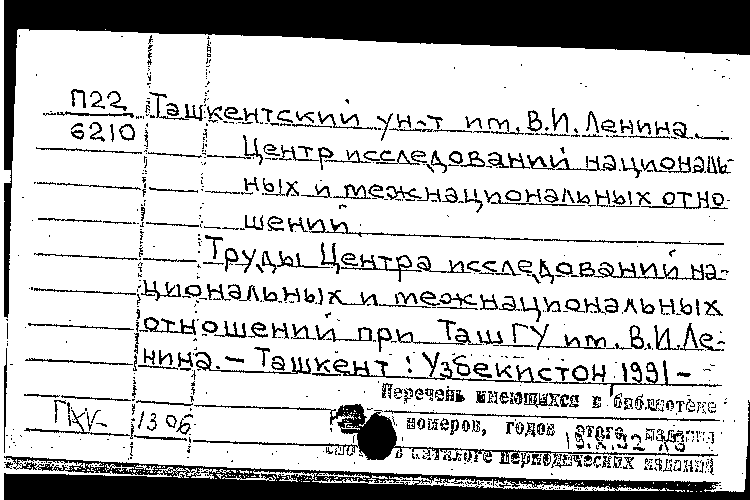 П22 Ташкентский ун-т им. В.И. Ленина.
6210
Центр исследований националь-
ных и межнациональных отно-
шений.
Труды Центра исследований на-
циональных и межнациональных
отношений при ТашГУ им. В.И. Ле-
нина. – Ташкент: Узбекистон, 1991 –
Перечень имеющихся в библиотеке
1306 номеров, годов этого издания
в каталоге периодических изданий